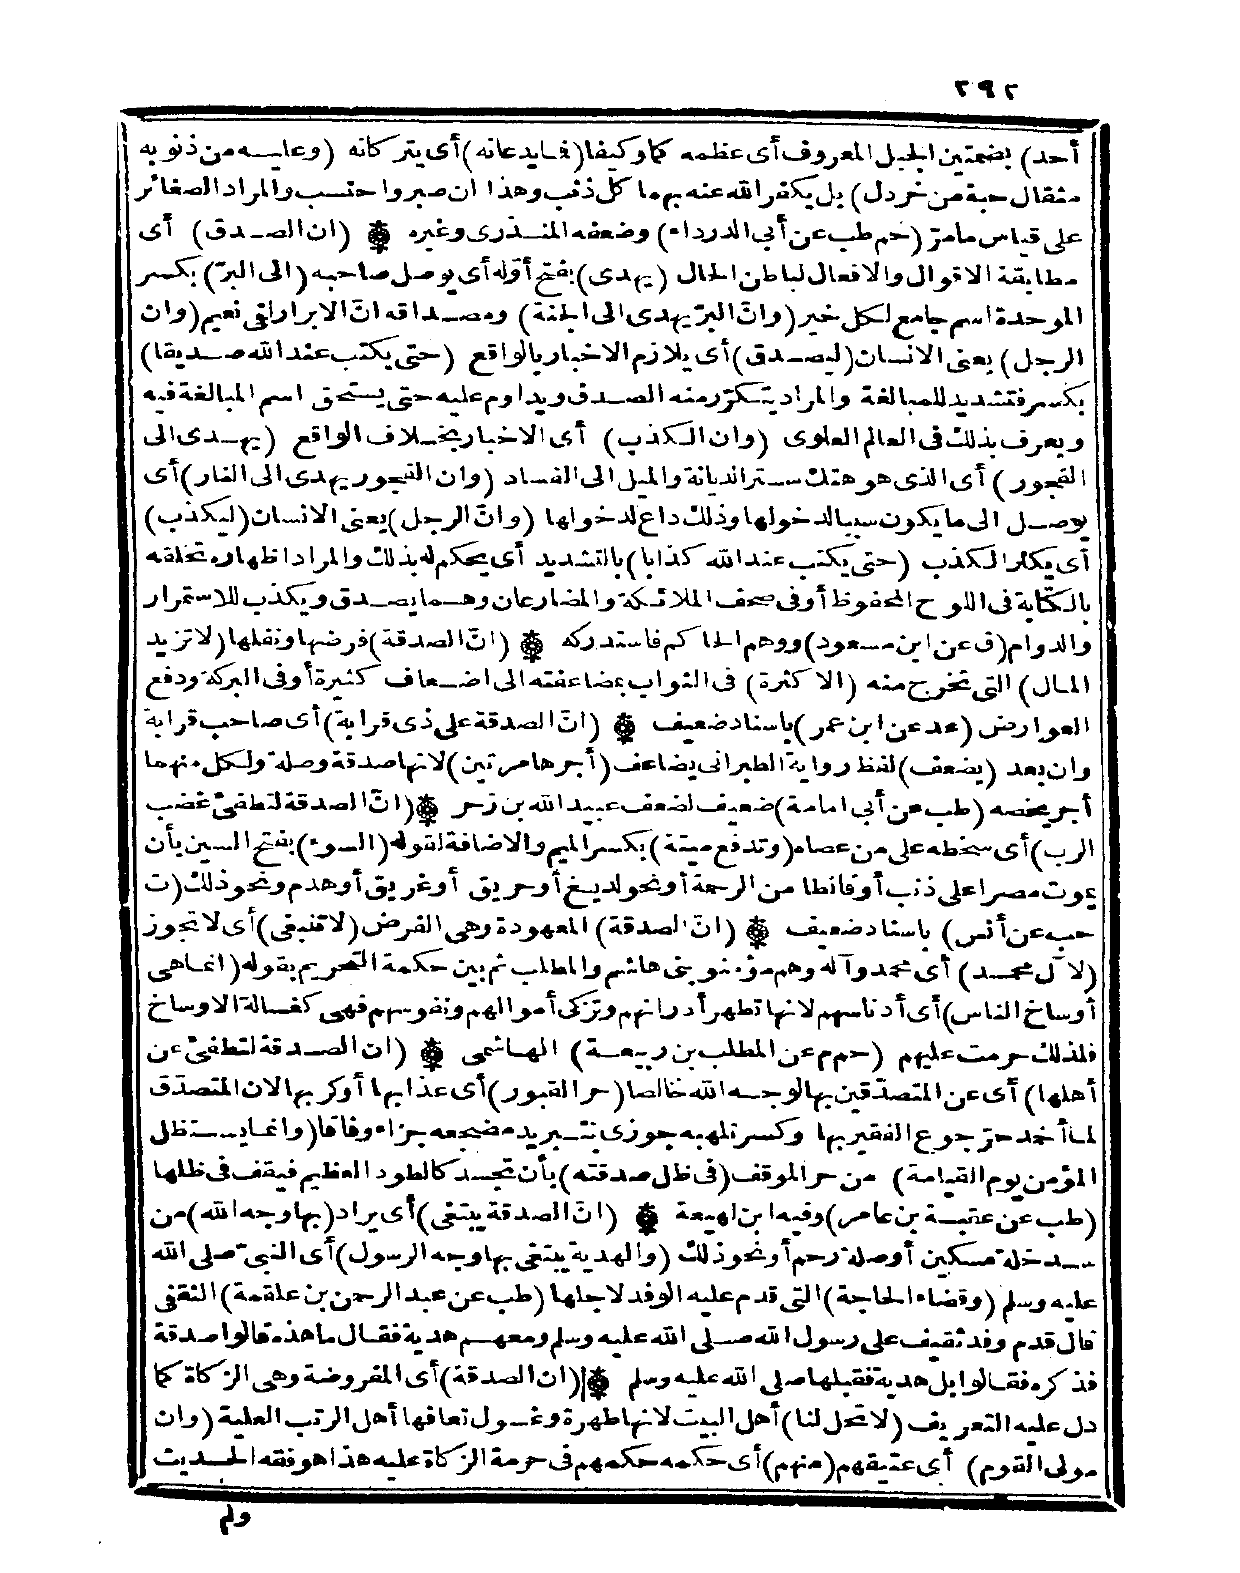 ٢٩٢
أحد) بضمتين الجبل المعروف أى عظمه كما وكيفا (فما يدعانه) أى يتركانه (وعليه من ذنوبه
مثقال حبة من خردل) بل يكفر الله عنه بهما كل ذنب وهذا ان صبر واحتسب والمراد الصغائر
على قياس مامرّ (حم طب عن أبى الدرداء) وضعفه المنذرى وغيره ۞ (ان الصدق) أى
مطابقة الاقوال والافعال لباطن الحال (يهدى) بفتح أوّله أى يوصل صاحبه (الى البرّ) بكسر
الموحدة اسم جامع لكل خير (وانّ البرّ يهدى الى الجنة) ومصداقه انّ الابرار لفى نعيم (وان
الرجل) يعنى الانسان (ليصدق) أى يلازم الاخبار بالواقع (حتى يكتب عند الله صديقا)
بكسر فتشديد للمبالغة والمراد يتكرّر منه الصدق ويداوم عليه حتى يستحق اسم المبالغة فيه
ويعرف بذلك فى العالم العلوى (وان الكذب) أى الاخبار بخلاف الواقع (يهدى الى
الفجور) أى الذى هو هتك ستر الديانة والميل الى الفساد (وان الفجور يهدى الى النار) أى
يوصل الى ما يكون سببا لدخولها وذلك داع لدخولها (وانّ الرجل) يعنى الانسان (ليكذب)
أى يكثر الكذب (حتى يكتب عند الله كذابا) بالتشديد أى يحكم له بذلك والمراد اظهاره لخلقه
بالكتابة فى اللوح المحفوظ أو فى صحف الملائكة والمضارعان وهما يصدق ويكذب للاستمرار
والدوام (ق عن ابن مسعود) ووهم الحاكم فاستدركه ۞ (انّ الصدقة) فرضها ونفلها (لا تزيد
المال) التى تخرج منه (الا كثرة) فى الثواب بمضاعفته الى اضعاف كثيرة أو فى البركة ودفع
العوارض (عد عن ابن عمر) باسناد ضعيف ۞ (انّ الصدقة على ذى قرابة) أى صاحب قرابة
وان بعد (يضعف) لفظ رواية الطبرانى يضاعف (أجرها مرتين) لانها صدقة وصلة ولكل منهما
أجر يخصه (طب عن أبى امامة) ضعيف لضعف عبيد الله بن زحر ۞ (انّ الصدقة لتطفئ غضب
الرب) أى سخطه على من عصاه (وتدفع ميتة) بكسر الميم والاضافة لقوله (السوء) بفتح السين بأن
يموت مصرا على ذنب أو قانطا من الرحمة أو نحو لديغ أو حريق أو غريق أو هدم ونحو ذلك (ت
حب عن أنس) باسناد ضعيف ۞ (انّ الصدقة) المعهودة وهى الفرض (لا تنبغى) أى لا تجوز
(لآل محمد) أى محمد وآله وهم مؤمنو بنى هاشم والمطلب ثم بين حكمة التحريم بقوله (انما هى
أوساخ الناس) أى أدناسهم لانها تطهر أدرانهم وتزكى أموالهم ونفوسهم فهى كغسالة الاوساخ
فلذلك حرمت عليهم (حم م عن المطلب بن ربيعة) الهاشمى ۞ (ان الصدقة لتطفئ عن
أهلها) أى عن المتصدّقين بها لوجه الله خالصا (حر القبور) أى عذابها أو كربها لان المتصدّق
لما أخمد حرّ جوع الفقير بها وكسر تلهبه جوزى بتبريد مضجعه جزاء وفاقا (وانما يستظل
المؤمن يوم القيامة) من حر الموقف (فى ظل صدقته) بأن تجسد كالطود العظيم فيقف فى ظلها
(طب عن عقبة بن عامر) وفيه ابن لهيعة ۞ (انّ الصدقة يبتغى) أى يراد (بها وجه الله) من
سد خلة مسكين أو صلة رحم أو نحو ذلك (والهدية يبتغى بها وجه الرسول) أى النبىّ صلى الله
عليه وسلم (وقضاء الحاجة) التى قدم عليه الوفد لاجلها (طب عن عبد الرحمن بن علقمة) الثقفى
قال قدم وفد ثقيف على رسول الله صلى الله عليه وسلم ومعهم هدية فقال ما هذه قالوا صدقة
فذكره فقالوا بل هدية فقبلها صلى الله عليه وسلم ۞ (ان الصدقة) أى المفروضة وهى الزكاة كما
دل عليه التعريف (لا تحل لنا) أهل البيت لانها طهرة وغسول تعافها أهل الرتب العلية (وان
مولى القوم) أى عتيقهم (منهم) أى حكمه حكمهم فى حرمة الزكاة عليه هذا هو فقه الحديث
ولم